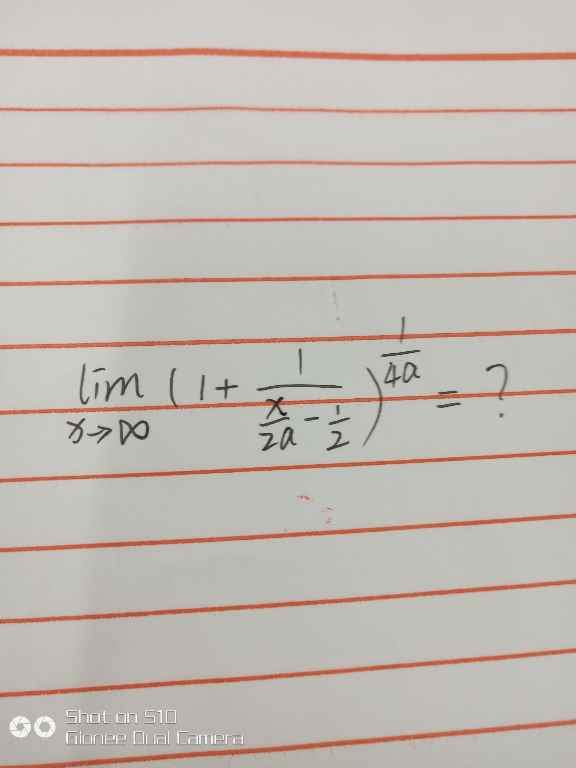 lim x→∞ (1 + 1/(x/2a - 1/2))^(1/4a) = ?
Shot on S10
Gionee Dual Camera